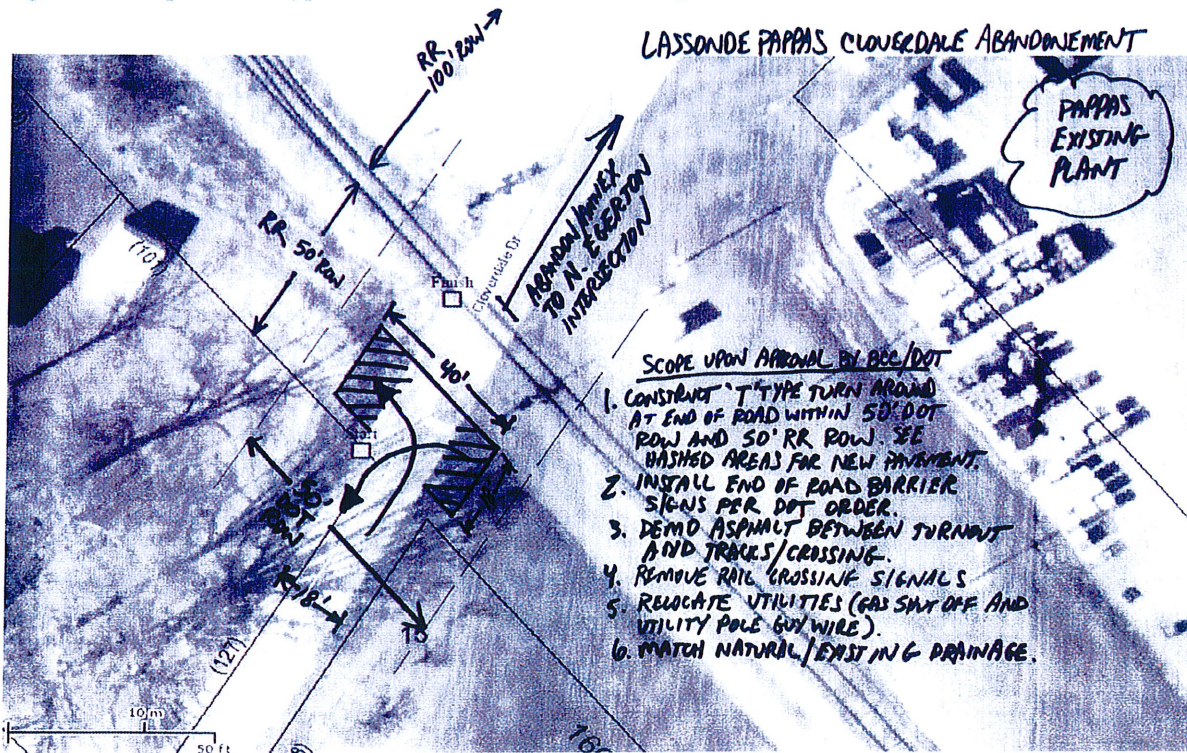 LASSONDE PAPPAS CLOVERDALE ABANDONEMENT
RR
100' ROW
PAPPAS
EXISTING
PLANT
RR 50' ROW
(107)
ABANDON/ANNEX
TO N. EGERSTON
INTERSECTION
Cloverdale Dr
Finish
40'
Start
18'
(127)
10 m
50 ft
SCOPE UPON APPROVAL BY BCC/DOT
1. CONSTRUCT 'T' TYPE TURN AROUND
AT END OF ROAD WITHIN 50' DOT
ROW AND 50' RR ROW. SEE
HASHED AREAS FOR NEW PAVEMENT.
2. INSTALL END OF ROAD BARRIER
SIGNS PER DOT ORDER.
3. DEMO ASPHALT BETWEEN TURNOUT
AND TRACKS/CROSSING.
4. REMOVE RAIL CROSSING SIGNALS
5. RELOCATE UTILITIES (GAS SHUT OFF AND
UTILITY POLE GUY WIRE).
6. MATCH NATURAL/EXISTING DRAINAGE.